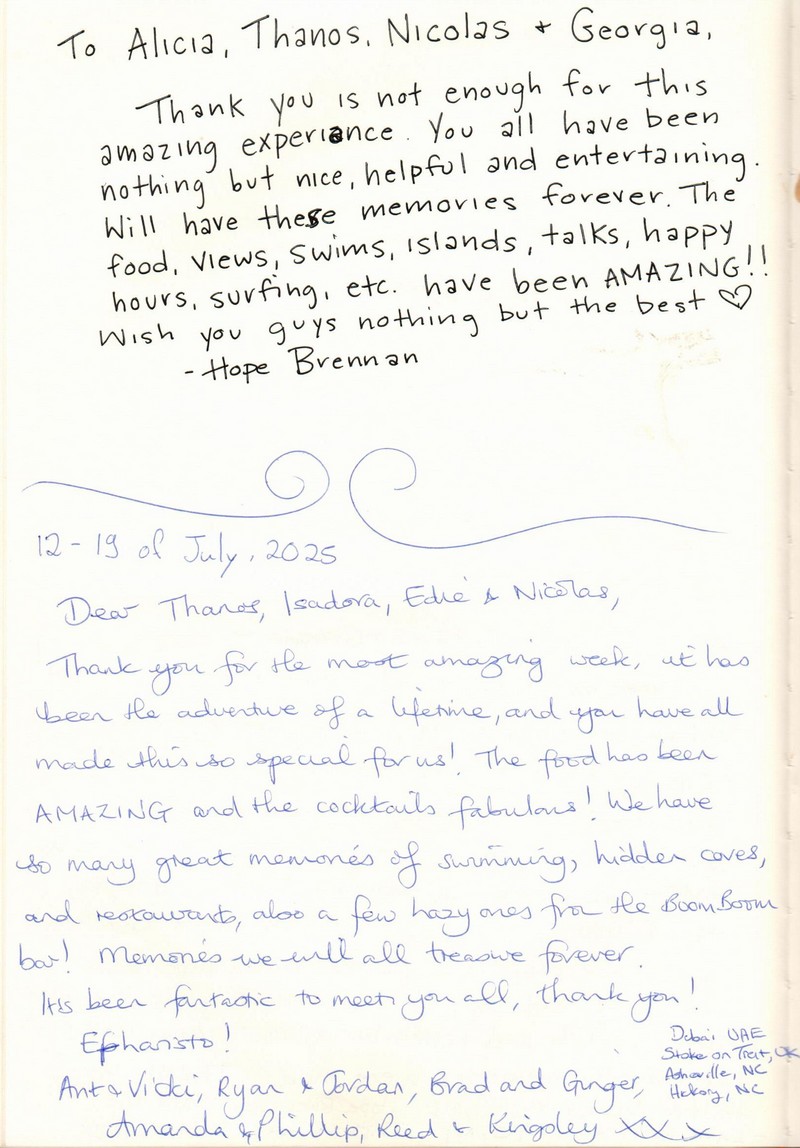 To Alicia, Thanos, Nicolas + Georgia,
Thank you is not enough for this
amazing experiance. You all have been
nothing but nice, helpful and entertaining.
Will have these memories forever. The
food, views, swims, islands, talks, happy
hours, surfing, etc. have been AMAZING!!
Wish you guys nothing but the best ♡
- Hope Brennan
12-19 of July, 2025
Dear Thanos, Isadora, Edie & Nicolas,
Thank you for the most amazing week, it has
been the adventure of a lifetime, and you have all
made this so special for us! The food has been
AMAZING and the cocktails fabulous! We have
so many great memories of swimming, hidden coves,
and restaurants, also a few hazy ones from the BoomBoom
bar! Memories we will all treasure forever.
It's been fantastic to meet you all, thank you!
Epharisto!
Ant & Vicki, Ryan & Jordan, Brad and Ginger,
Amanda & Phillip, Reed & Kingsley XXX
Dubai UAE
Stoke on Trent, UK
Asheville, NC
Hickory, NC